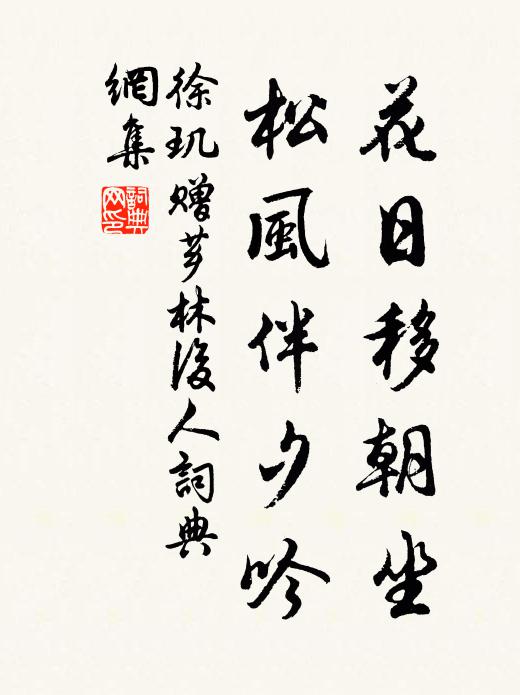 花日移朝坐
松風伴夕吟
徐玑贈薌林後人詞典
網集
詞典網印